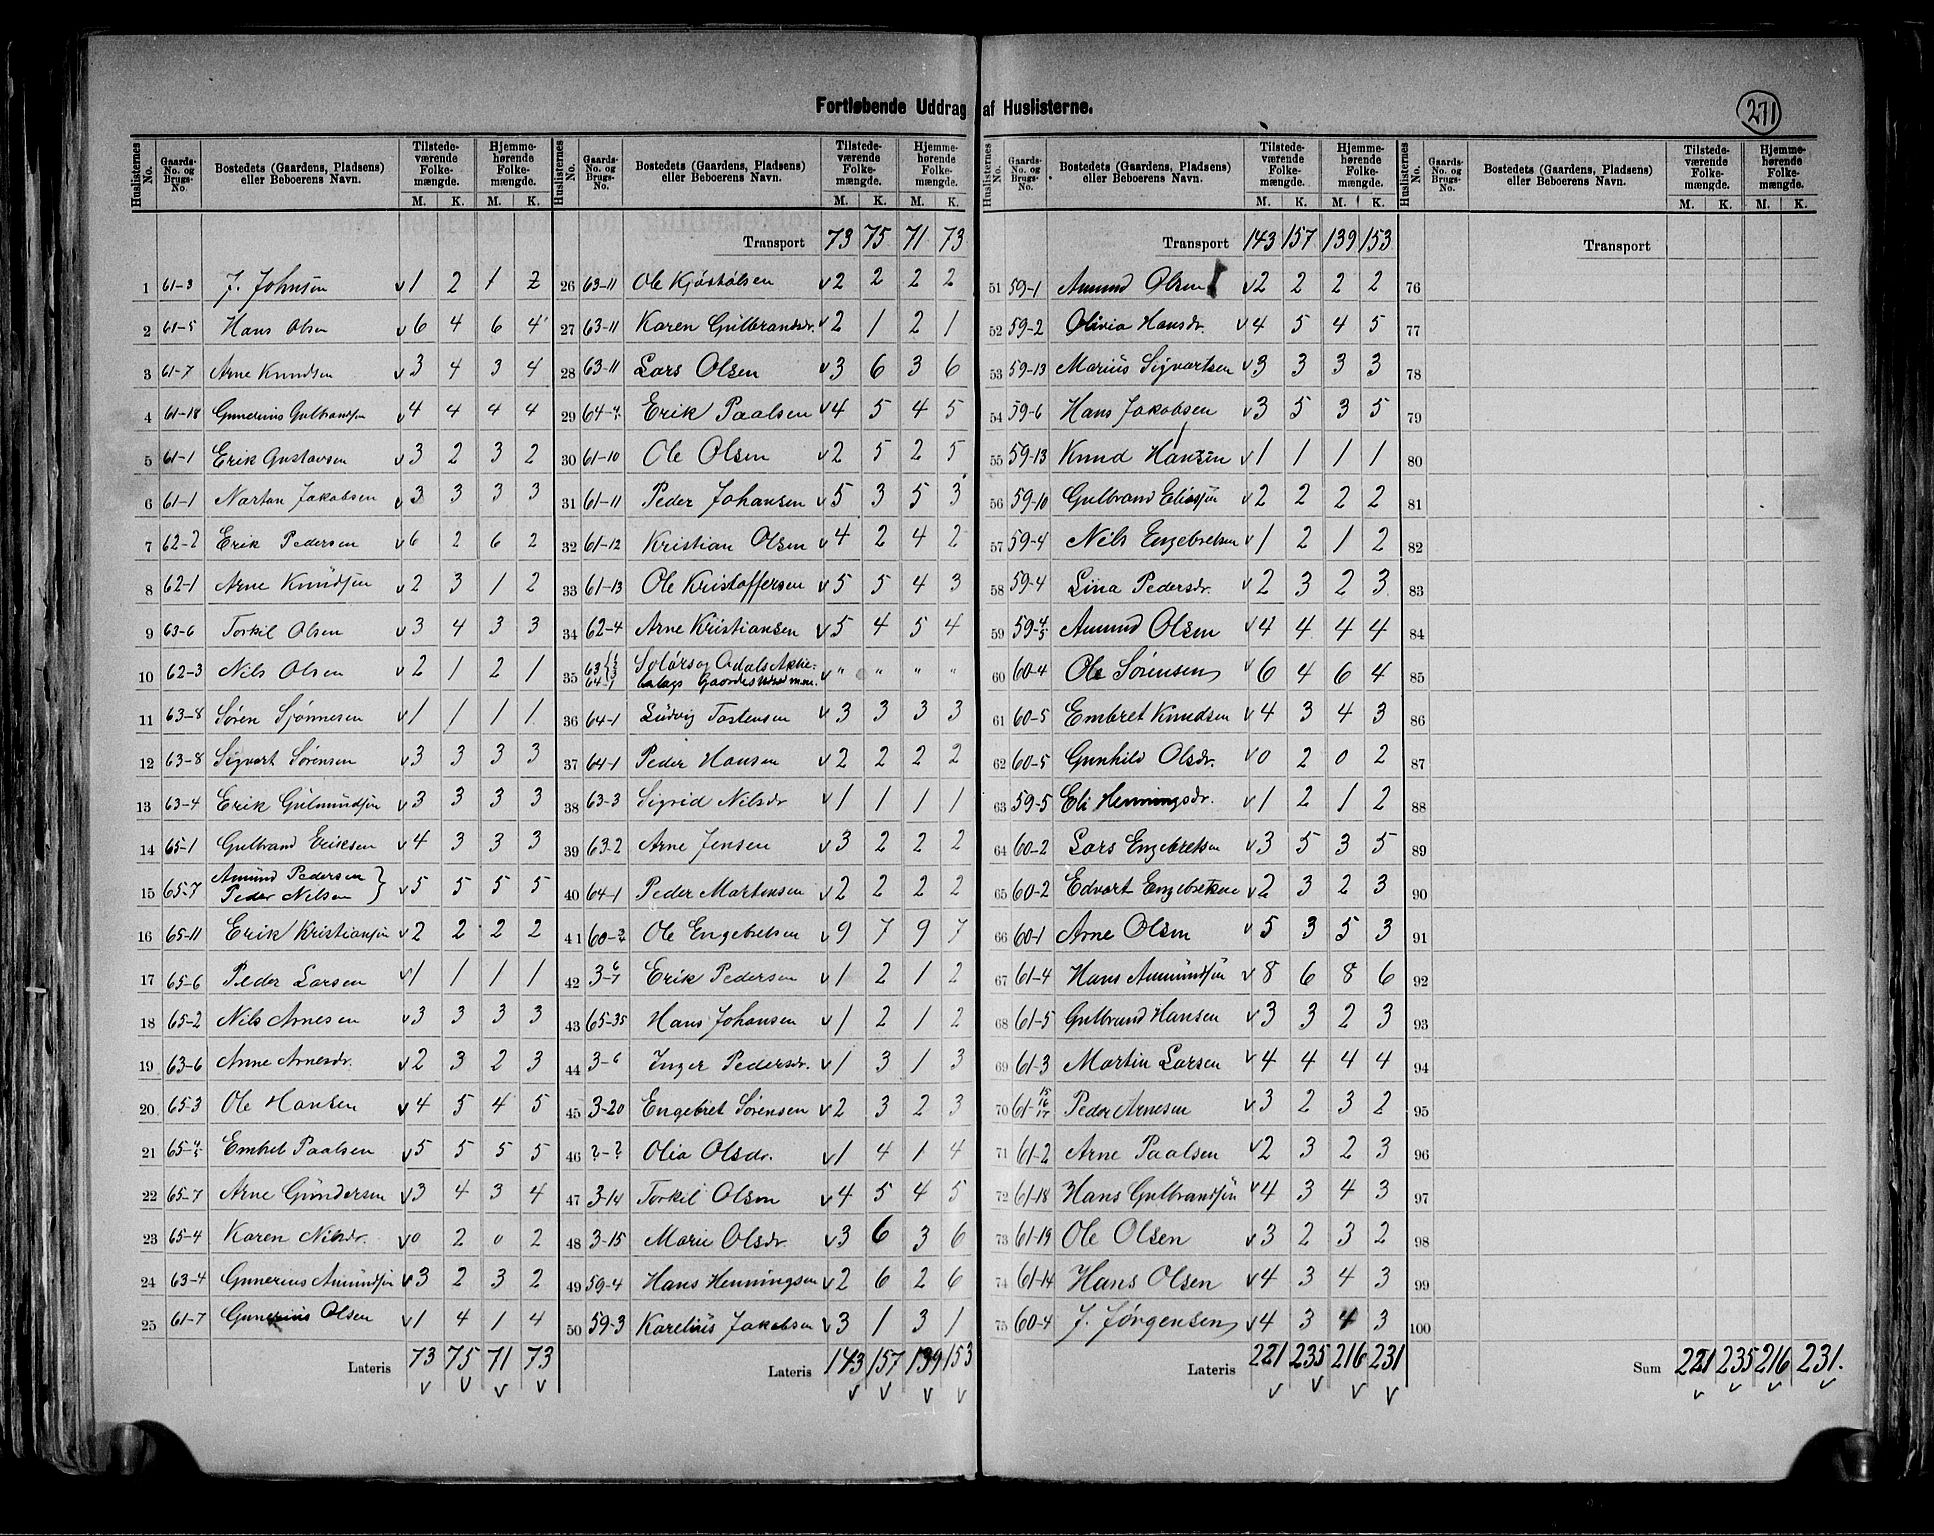 Fortløbende Uddrag af Huslisterne.
271
Huslisternes No. Gaards-No. og Brugs-No. Bostedets (Gaardens, Pladsens) eller Beboerens Navn. Tilstedeværende Folkemængde. M. K. Hjemmehørende Folkemængde. M. K.
1 61-3 J. Johnsen v 1 2 1 2
2 61-5 Hans Olsen v 6 4 6 4
3 61-7 Arne Knudsen v 3 4 3 4
4 61-18 Gunerius Gulbrandsen v 4 4 4 4
5 61-1 Erik Gustavsen v 3 2 3 2
6 61-1 Jakobsen v 3 3 3 3
7 62-2 Erik Pedersen v 6 2 6 2
8 62-1 Arne Knudsen v 2 3 1 2
9 63-6 Torkil Olsen v 3 4 3 3
10 62-3 Nils Olsen v 2 1 2 1
11 63-8 Søren Sjønnesen v 1 1 1 1
12 63-8 Sigvart Sørensen v 3 3 3 3
13 63-4 Erik Gulmundsen v 3 3 3 3
14 65-1 Gulbrand Eriksen v 4 3 3 3
15 65-7 Amund Pedersen
Peder Nilsen } v 5 5 5 5
16 65-11 Erik Kristiansen v 2 2 2 2
17 65-6 Peder Larsen v 1 1 1 1
18 65-2 Nils Arnesen v 3 3 3 3
19 63-6 Anne Arnesdr. v 2 3 2 3
20 65-3 Ole Hansen v 4 5 4 5
21 65-4/5 Embret Paalsen v 5 5 5 5
22 65-7 Arne Gundersen v 3 4 3 4
23 65-4 Karen Nilsdr. v 0 2 0 2
24 63-4 Gunerius Amundsen v 3 2 3 2
25 61-7 Gunerius Olsen v 1 4 1 4
Lateris 73 75 71 73
v v v v
Huslisternes No. Gaards-No. og Brugs-No. Bostedets (Gaardens, Pladsens) eller Beboerens Navn. Tilstedeværende Folkemængde. M. K. Hjemmehørende Folkemængde. M. K.
Transport 73 75 71 73
26 63-11 Ole Kjøstolsen v 2 2 2 2
27 63-11 Karen Gulbrandsdr. v 2 1 2 1
28 63-11 Lars Olsen v 3 6 3 6
29 64-2 Erik Paalsen v 4 5 4 5
30 61-10 Ole Olsen v 2 5 2 5
31 61-11 Peder Johansen v 5 3 5 3
32 61-12 Kristian Olsen v 4 2 4 2
33 61-13 Ole Kristoffersen v 5 5 4 3
34 62-4 Arne Kristiansen v 5 4 5 4
35 63 64-1 Solørs og Odals
Gaardes v " " " "
36 64-1 Ludvig Tostensen v 3 3 3 3
37 64-1 Peder Hansen v 2 2 2 2
38 63-3 Sigrid Nilsdr v 1 1 1 1
39 63-2 Arne Jensen v 3 2 2 2
40 64-1 Peder Martensen v 2 2 2 2
41 60-3/4 Ole Engebretsen v 9 7 9 7
42 3-6/7 Erik Pedersen v 1 2 1 2
43 65-35 Hans Johansen v 1 2 1 2
44 3-6 Inger Pedersdr. v 1 3 1 3
45 3-20 Engebret Sørensen v 2 3 2 3
46 ?-? Olia Olsdr. v 1 4 1 4
47 3-14 Torkil Olsen v 4 5 4 5
48 3-15 Marie Olsdr. v 3 6 3 6
49 59-4 Hans Henningsen v 2 6 2 6
50 59-3 Karelius Jakobsen v 3 1 3 1
Lateris 143 157 139 153
v v v v
Huslisternes No. Gaards-No. og Brugs-No. Bostedets (Gaardens, Pladsens) eller Beboerens Navn. Tilstedeværende Folkemængde. M. K. Hjemmehørende Folkemængde. M. K.
Transport 143 157 139 153
51 59-1 Amund Olsen v 2 2 2 2
52 59-2 Olivia Hansdr. v 4 5 4 5
53 59-13 Marius Sigvartsen v 3 3 3 3
54 59-6 Hans Jakobsen v 3 5 3 5
55 59-13 Knud Hansen v 1 1 1 1
56 59-10 Gulbrand Eliassen v 2 2 2 2
57 59-4 Nils Engebretsen v 1 2 1 2
58 59-4 Lina Pedersdr. v 2 3 2 3
59 59-4/5 Amund Olsen v 4 4 4 4
60 60-4 Ole Sørensen v 6 4 6 4
61 60-5 Embret Knudsen v 4 3 4 3
62 60-5 Gunhild Olsdr. v 0 2 0 2
63 59-5 Eli Henningsdr. v 1 2 1 2
64 60-2 Lars Engebretsen v 3 5 3 5
65 60-2 Edvart Engebretsen v 2 3 2 3
66 60-1 Arne Olsen v 5 3 5 3
67 61-4 Hans Amundsen v 8 6 8 6
68 61-5 Gulbrand Hansen v 3 3 2 3
69 61-3 Martin Larsen v 4 4 4 4
70 61-15 16 17 Peder Arnesen v 3 2 3 2
71 61-2 Arne Paalsen v 2 3 2 3
72 61-18 Hans Gulbrandsen v 4 3 4 3
73 61-19 Ole Olsen v 3 2 3 2
74 61-14 Hans Olsen v 4 3 4 3
75 60-4 J. Jørgensen v 4 3 4 3
Lateris 221 235 216 231
v v v v
Huslisternes No. Gaards-No. og Brugs-No. Bostedets (Gaardens, Pladsens) eller Beboerens Navn. Tilstedeværende Folkemængde. M. K. Hjemmehørende Folkemængde. M. K.
Transport
76
77
78
79
80
81
82
83
84
85
86
87
88
89
90
91
92
93
94
95
96
97
98
99
100
Sum 221 235 216 231.
v v v v